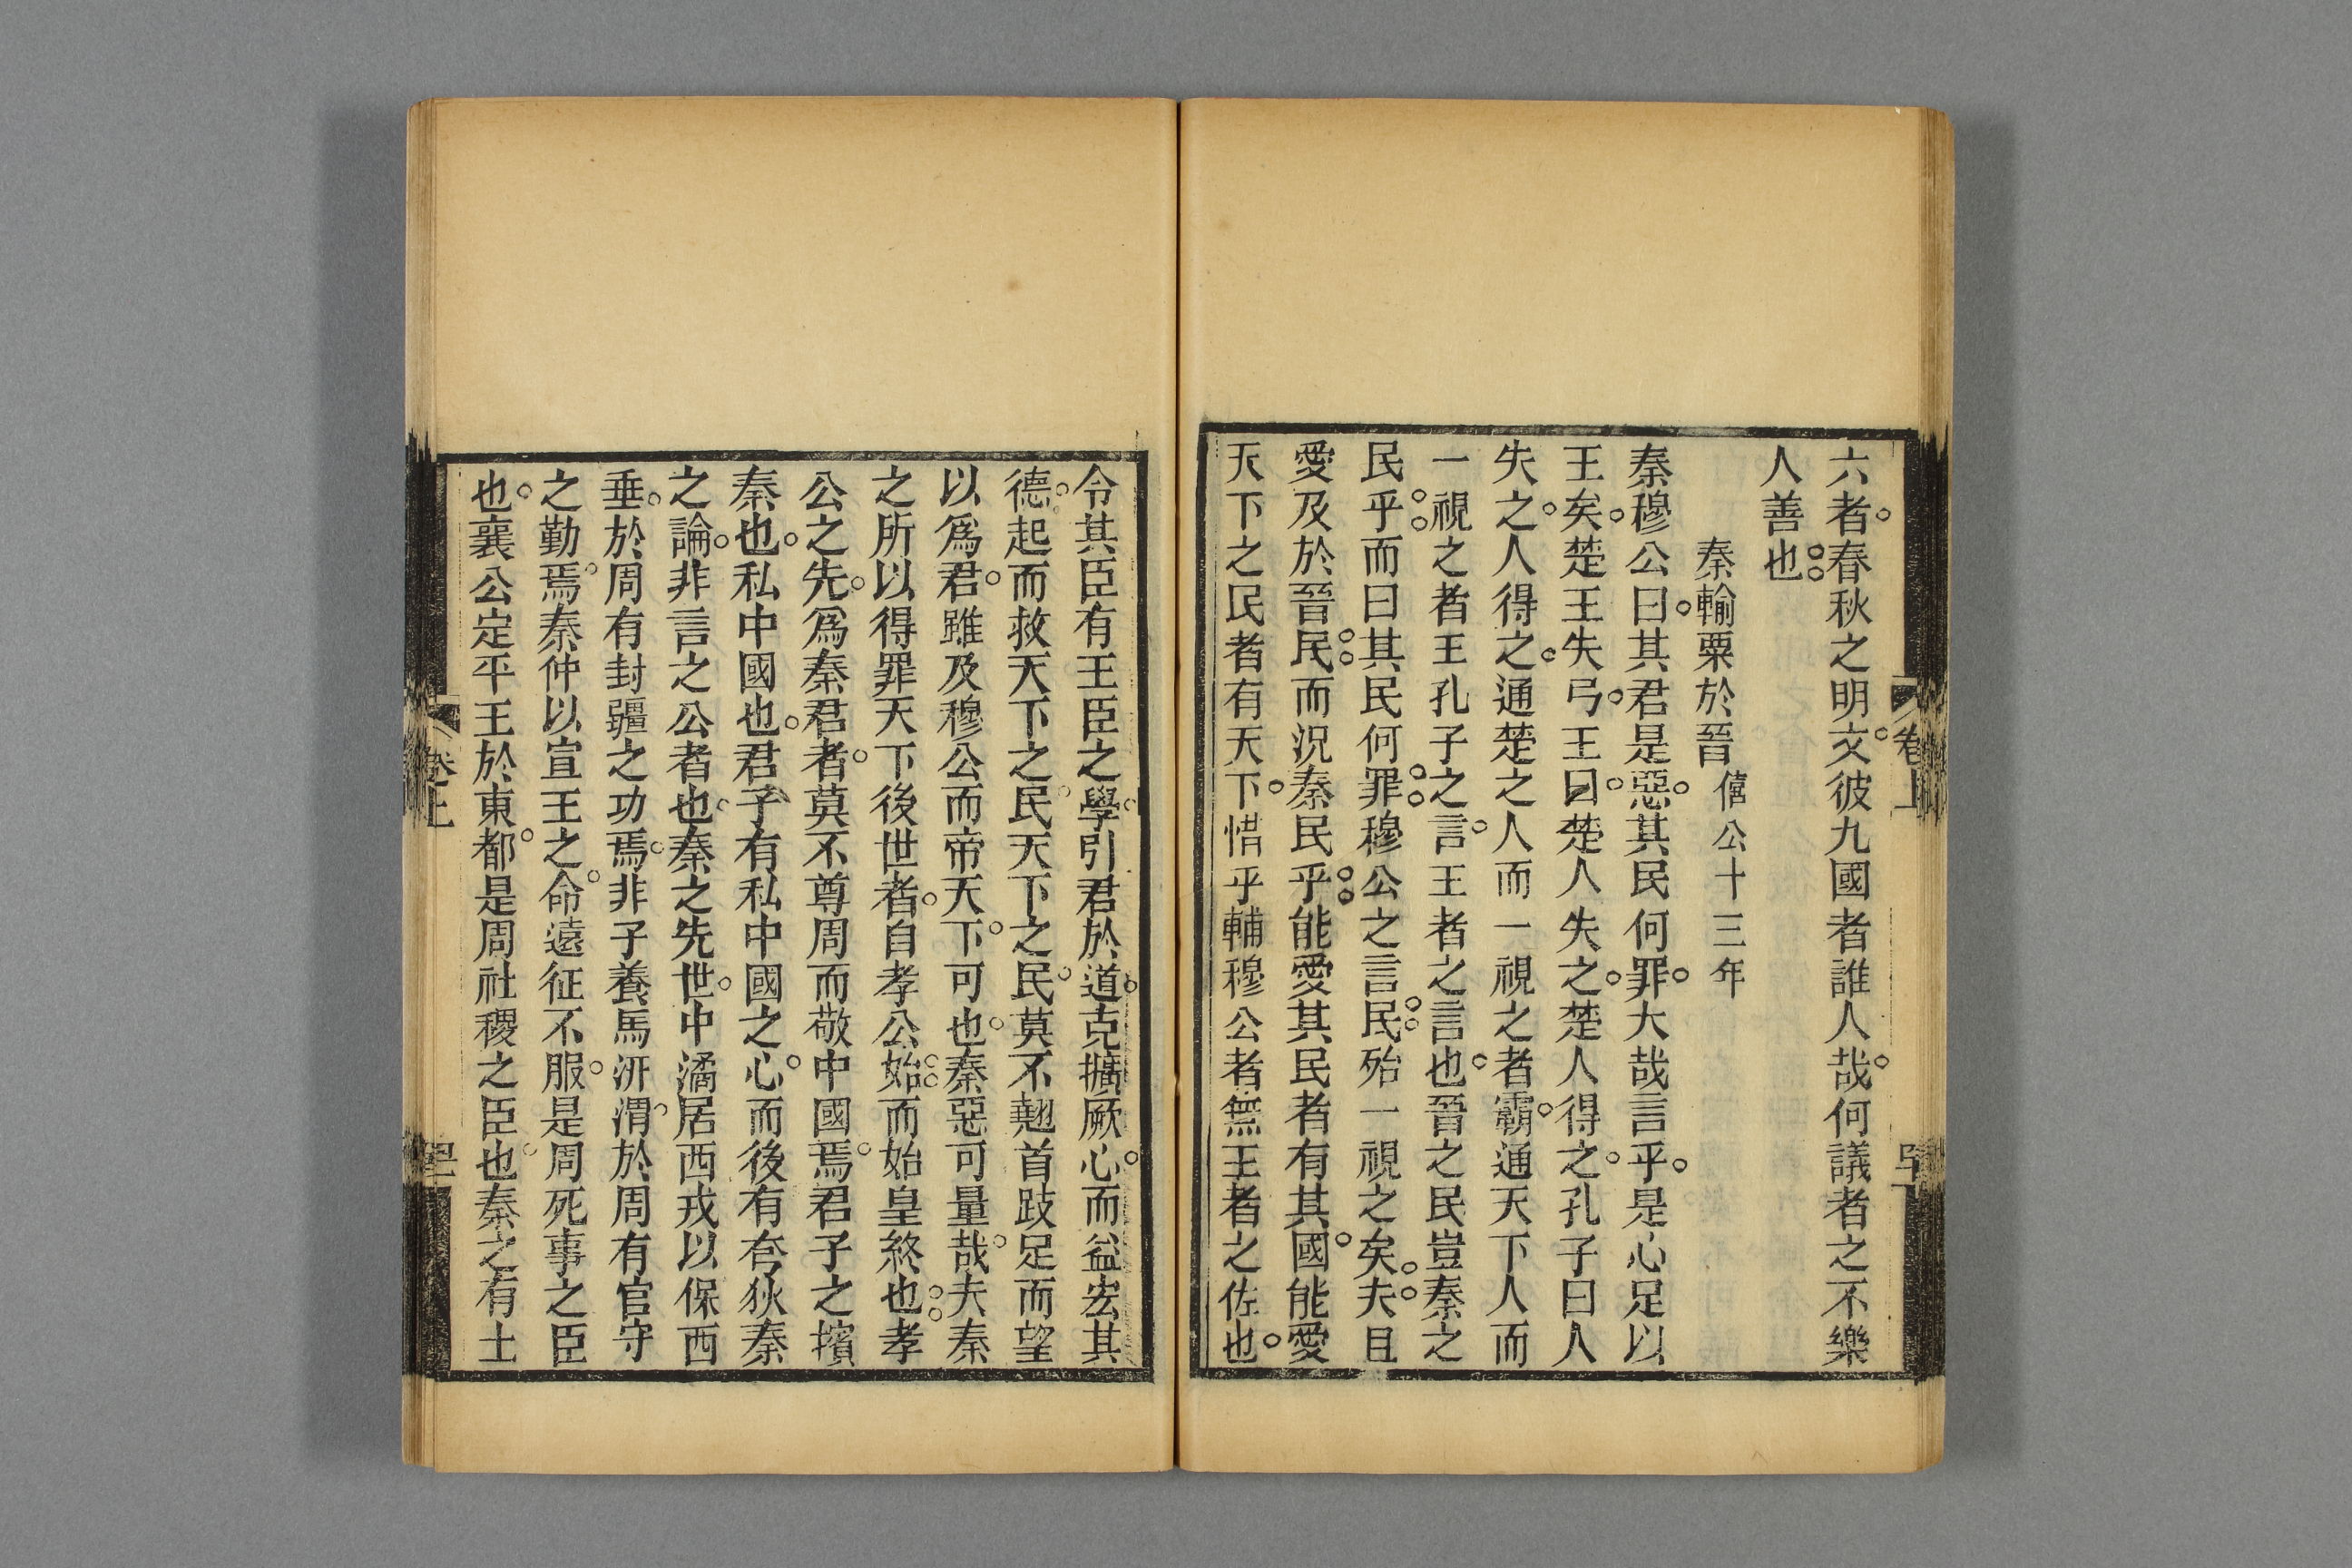 六者春秋之明文彼九國者誰人哉何議者之不樂
人善也
秦輸粟於晉 僖公十三年
秦穆公曰其君是惡其民何罪大哉言乎是心足以
王矣楚王失弓王曰楚人失之楚人得之孔子曰人
失之人得之通楚之人而一視之者霸通天下人而
一視之者王孔子之言王者之言也晉之民豈秦之
民乎而曰其民何罪穆公之言民殆一視之矣夫且
愛及於晉民而況秦民乎能愛其民者有其國能愛
天下之民者有天下惜乎輔穆公者無王者之佐也
令其臣有王臣之學引君於道克擴厥心而益宏其
德起而救天下之民天下之民莫不翹首跂足而望
以爲君雖及穆公而帝天下可也秦惡可量哉夫秦
之所以得罪天下後世者自孝公始而始皇煞也孝
公之先爲秦君者莫不尊周而敬中國焉君子之擯
秦也私中國也君子有私中國之心而後有夸狄秦
之論非言之公者也秦之先世中潏居西戎以保西
垂於周有封疆之功焉非子養馬汧渭於周有官守
之勤焉秦仲以宣王之命遠征不服是周死事之臣
也襄公定平王於東都是周社稷之臣也秦之有土
卷上
卷上